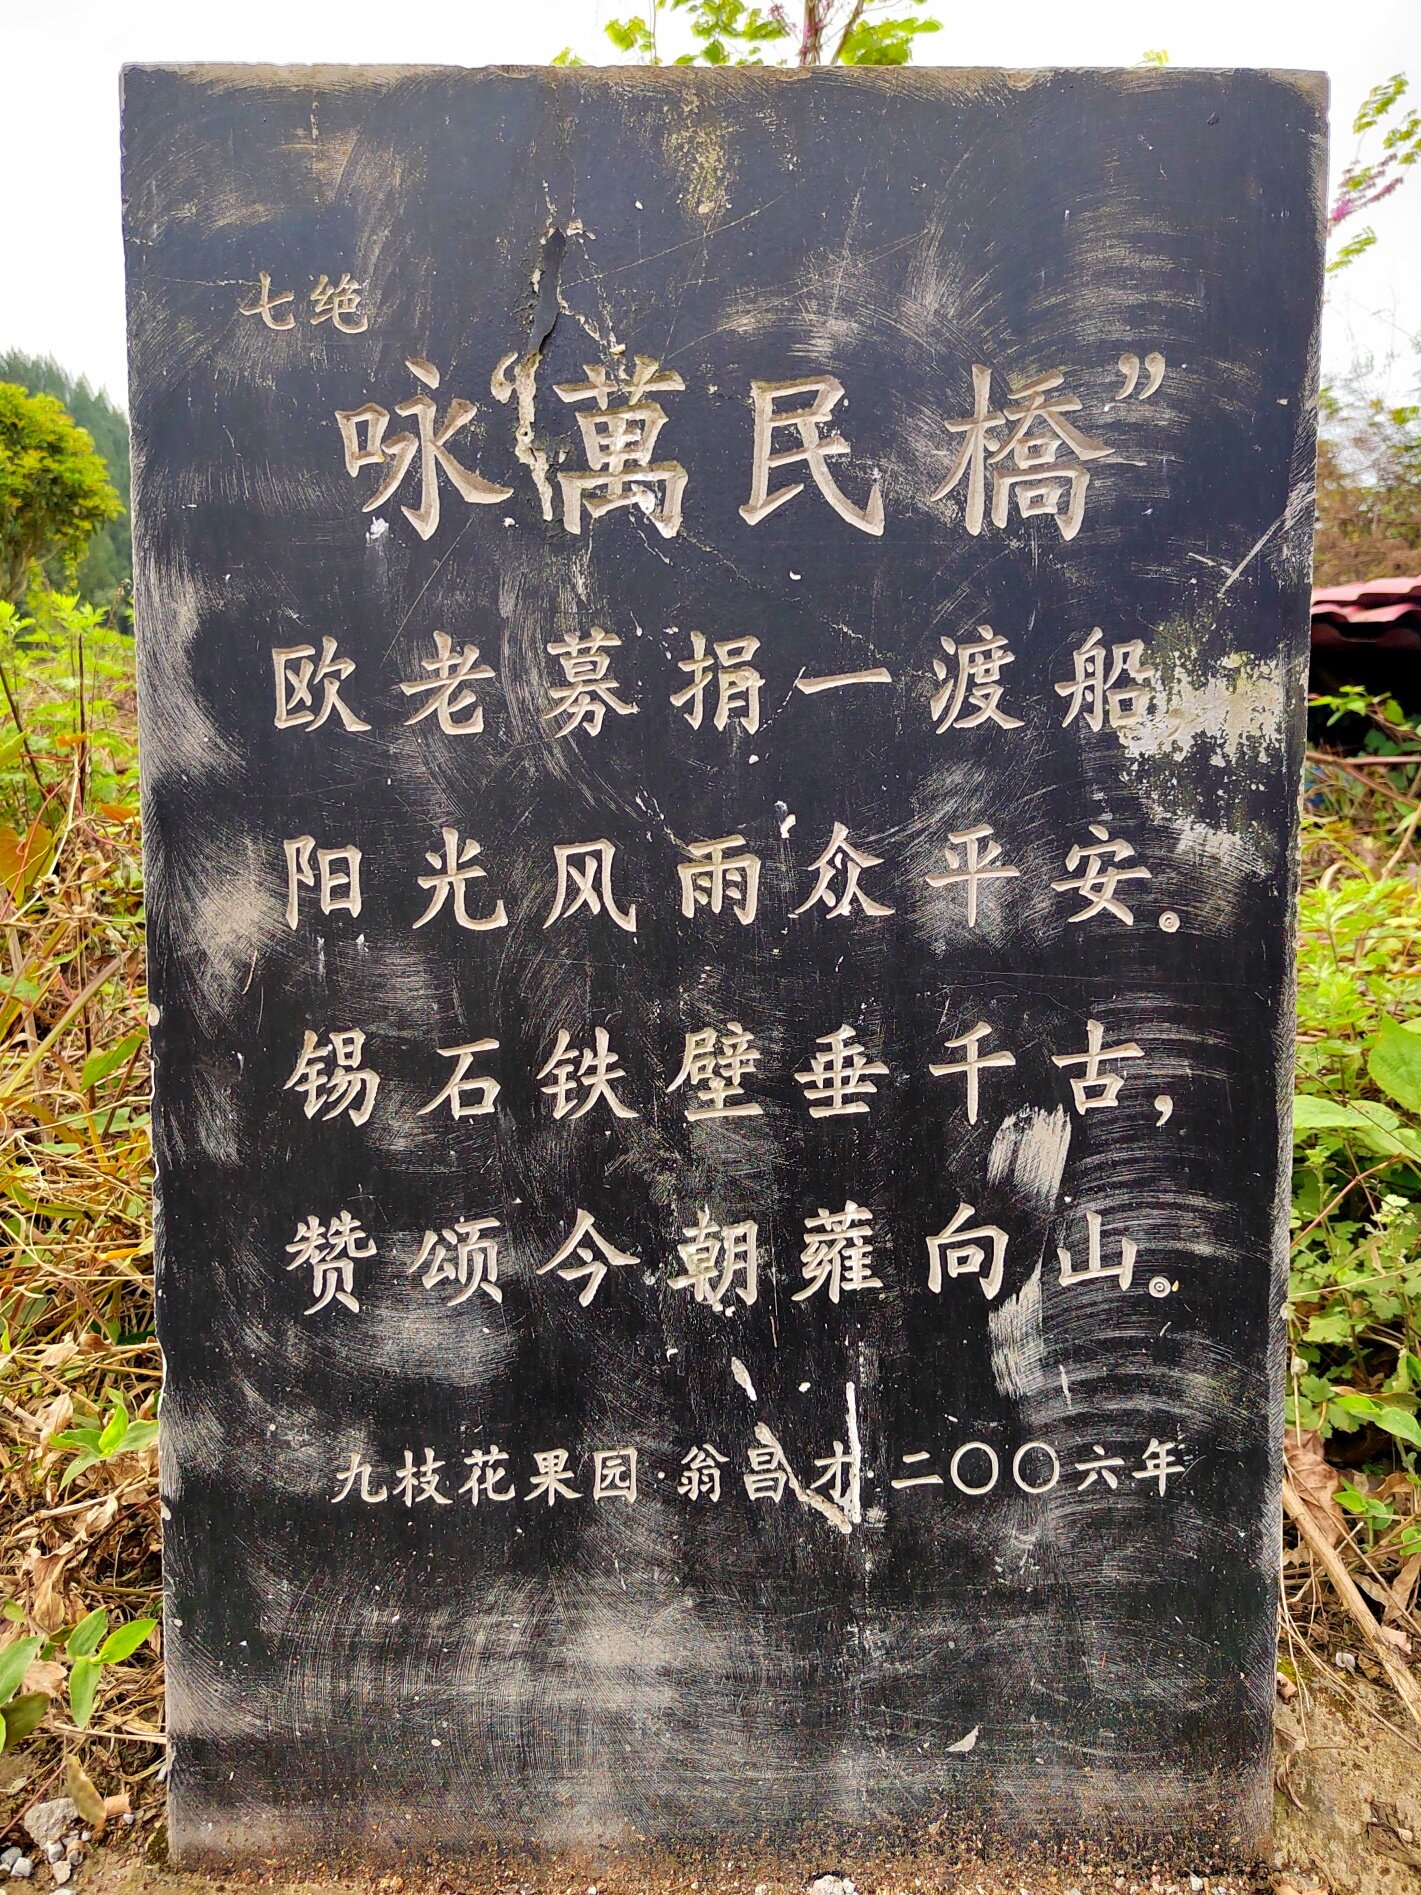 七绝
咏“萬民橋”
欧老募捐一渡船
阳光风雨众平安。
锡石铁壁垂千古，
赞颂今朝蕹向山。
九枝花果园·翁昌才·二〇〇六年